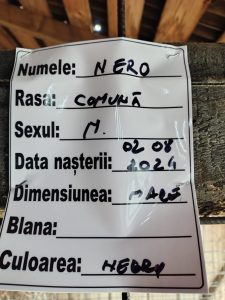 Numele: NERO
Rasa: COMUNĂ
Sexul: M.
Data nașterii: 02 08 2024
Dimensiunea: MARE
Blana:
Culoarea: NEGRU